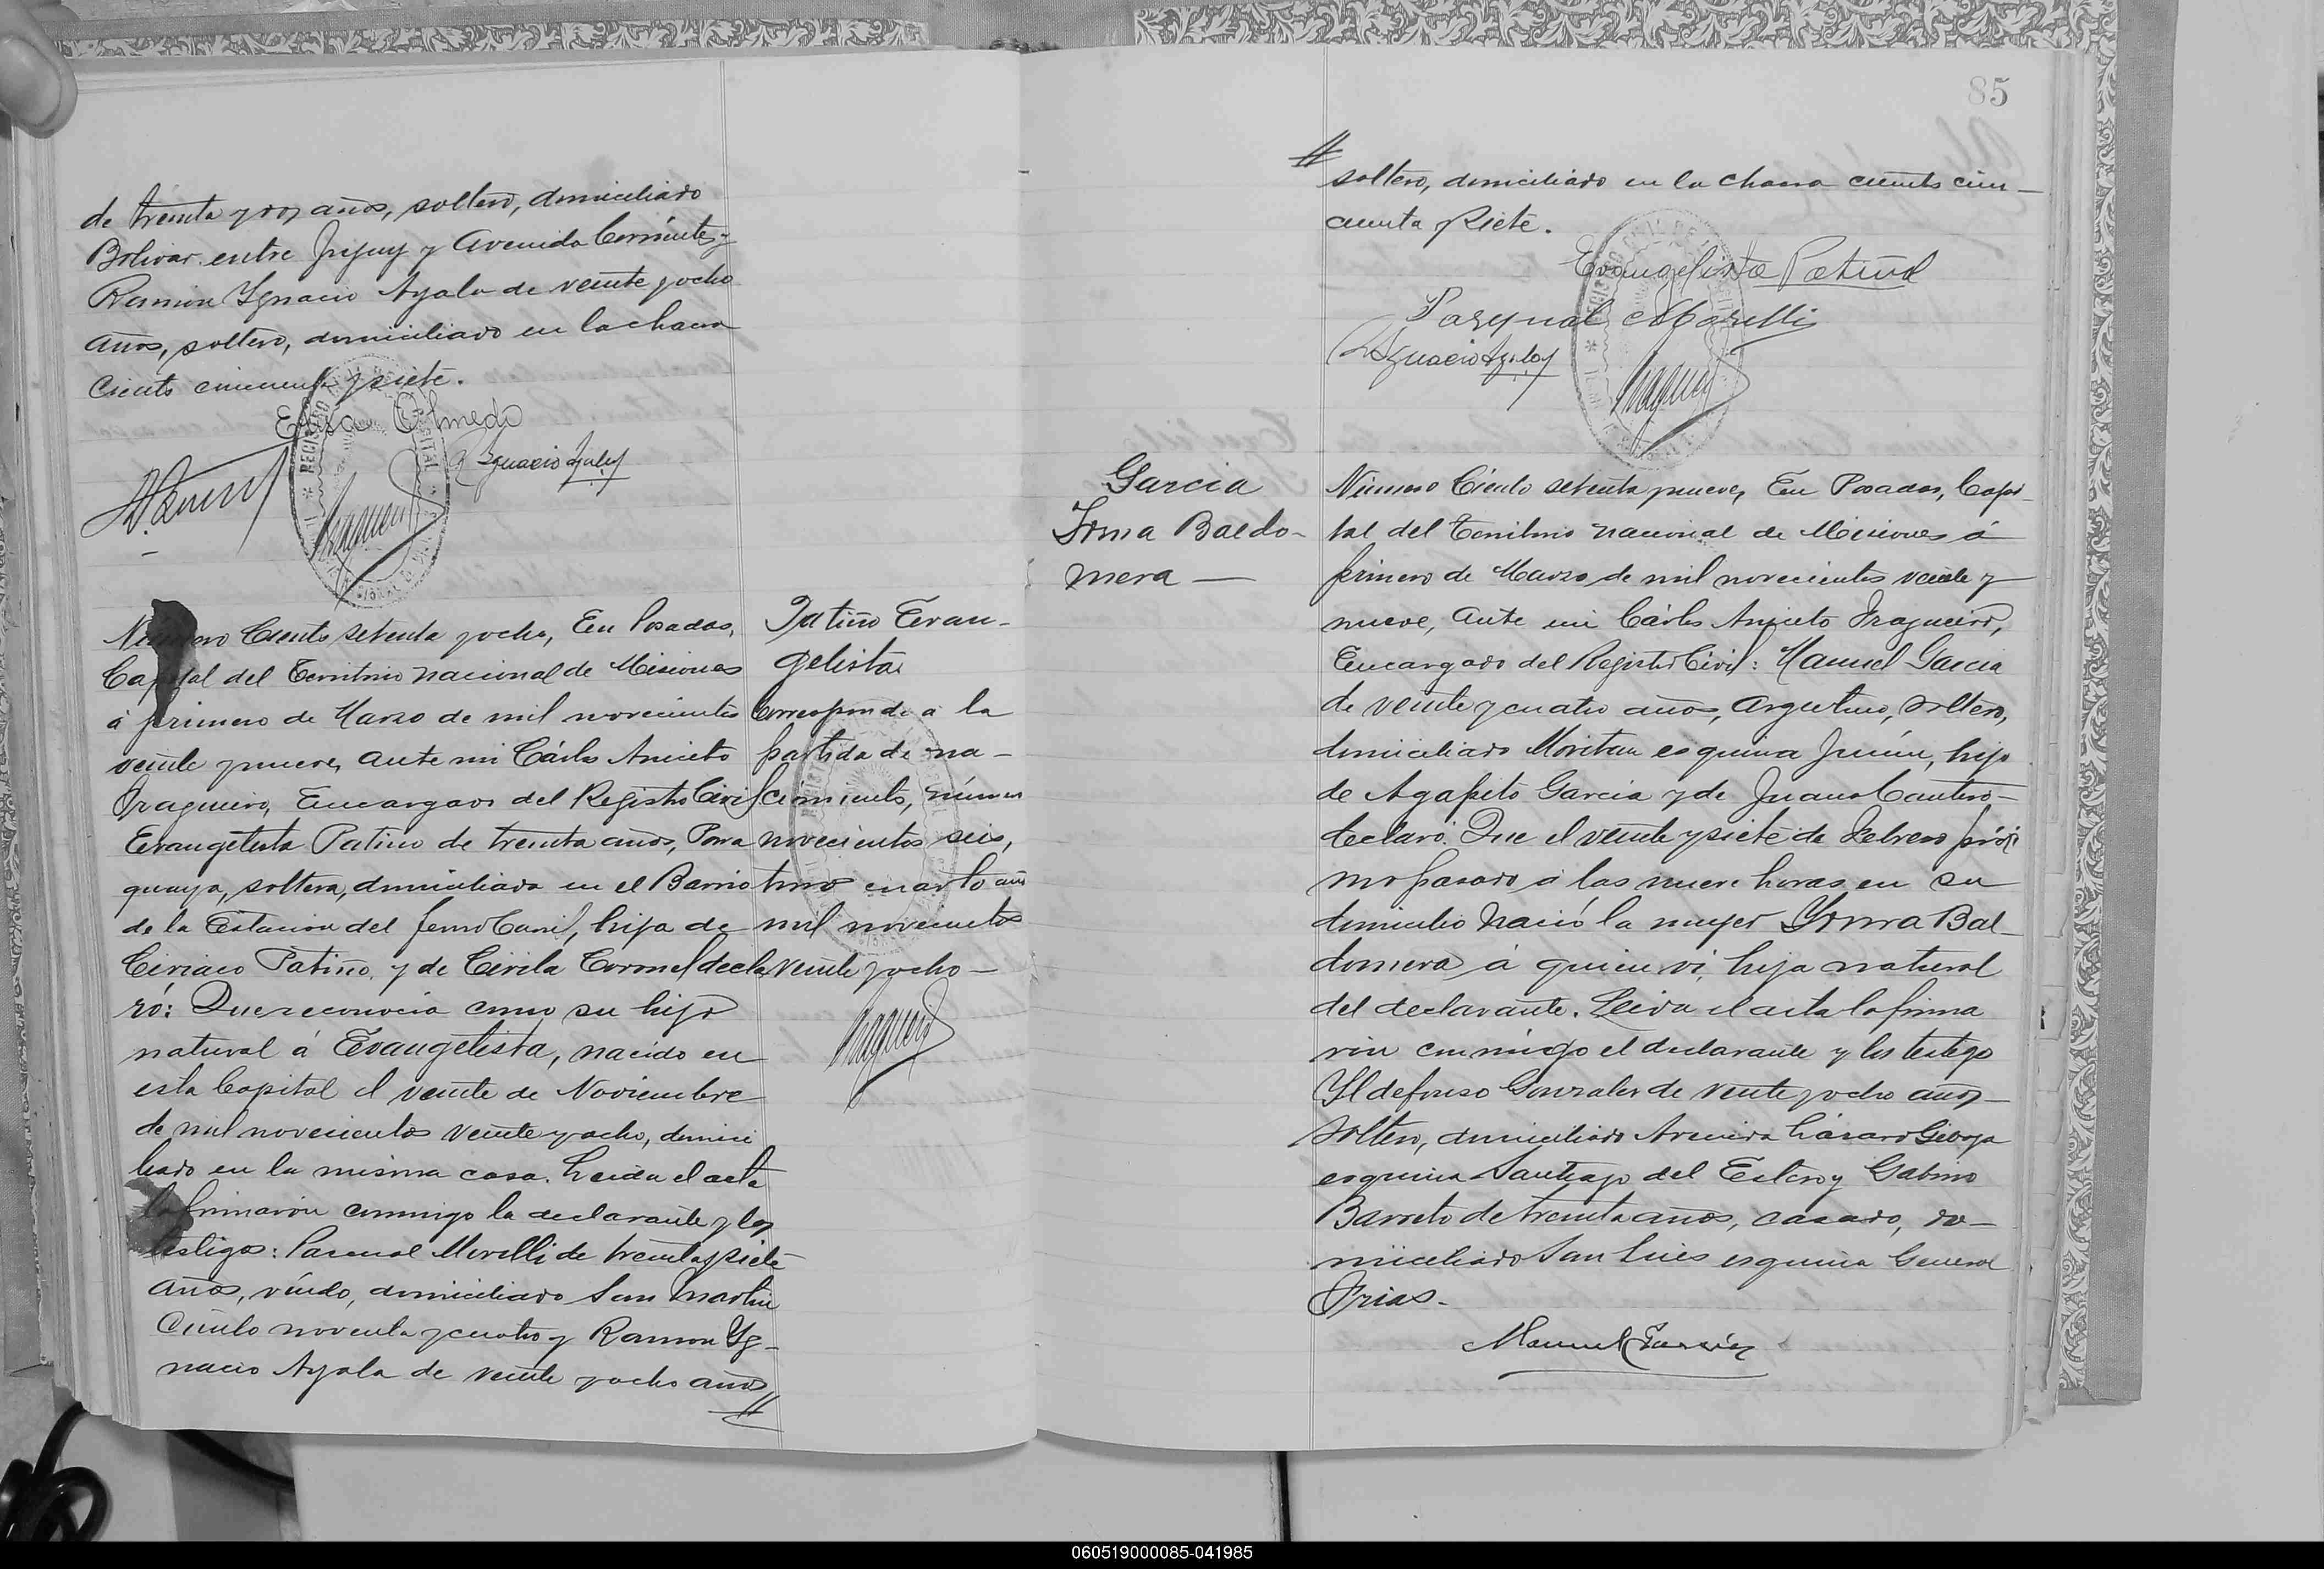 de treinta y dos años, soltero, domiciliado
Bolivar entre Jujuy y Avenida Corrientes y
Ramon Ygnacio Ayala de veinte y ocho
años, soltero, domiciliado en la chacra
ciento cincuenta y siete.
Elisa Olmedo
R Ygnacio Ayala
Número Ciento setenta y ocho, En Posadas,
Capital del Territorio nacional de Misiones
á primero de Marzo de mil novecientos
veinte y nueve, ante mi Cárlos Aniceto
Fragueiro, Encargado del Registro Civil
Evangelista Patiño de treinta años, Para
guaya, soltera, domiciliada en el Barrio
de la Estacion del ferro Carril, hija de
Ciriaco Patiño, y de Cirila Coronel decla
ró: Que reconocia como su hijo
natural á Evangelista, nacido en
esta Capital el veinte de Noviembre
de mil novecientos veinte y ocho, domici
liado en la misma casa. Leida el acta
la firmaron conmigo la declarante y los
testigos: Pascual Morelli de treinta y siete
años, viudo, domiciliado San Martin
Ciento noventa y cuatro y Ramon Yg-
nacio Ayala de veinte y ocho años
//
Patiño Evan-
gelista
Corresponde a la
partida de na-
cimiento, número
novecientos seis,
tomo cuarto año
mil novecientos
veinte y ocho-
85
//
soltero, domiciliado en la chacra ciento cin-
cuenta y siete.
Evangelista Patiño
Pasqual Morelli
R Ygnacio Ayala
Garcia
Irma Baldo-
mera —
Número Ciento setenta y nueve, En Posadas, Capi-
tal del Territorio nacional de Misiones á
primero de Marzo de mil novecientos veinte y
nueve, ante mi Cárlos Aniceto Fragueiro,
Encargado del Registro Civil: Manuel Garcia
de veinte y cuatro años, argentino, soltero,
domiciliado Moritan esquina Junin, hijo
de Agapito Garcia y de Juana Cantero-
declaró: Que el veinte y siete de Febrero próxi
mo pasado á las nueve horas en su
domicilio nació la mujer Yrma Bal-
domera á quien vi, hija natural
del declarante. Leida el acta la firma
ron conmigo el declarante y los testigo
Yldefonso Gonzalez de veinte y ocho años-
soltero, domiciliado Avenida Lázaro
esquina Santiago del Estero y Gabino
Barreto de treinta años, casado, do-
miciliado San Luis esquina General
Frias-
Manuel Garcia
060519000085-041985